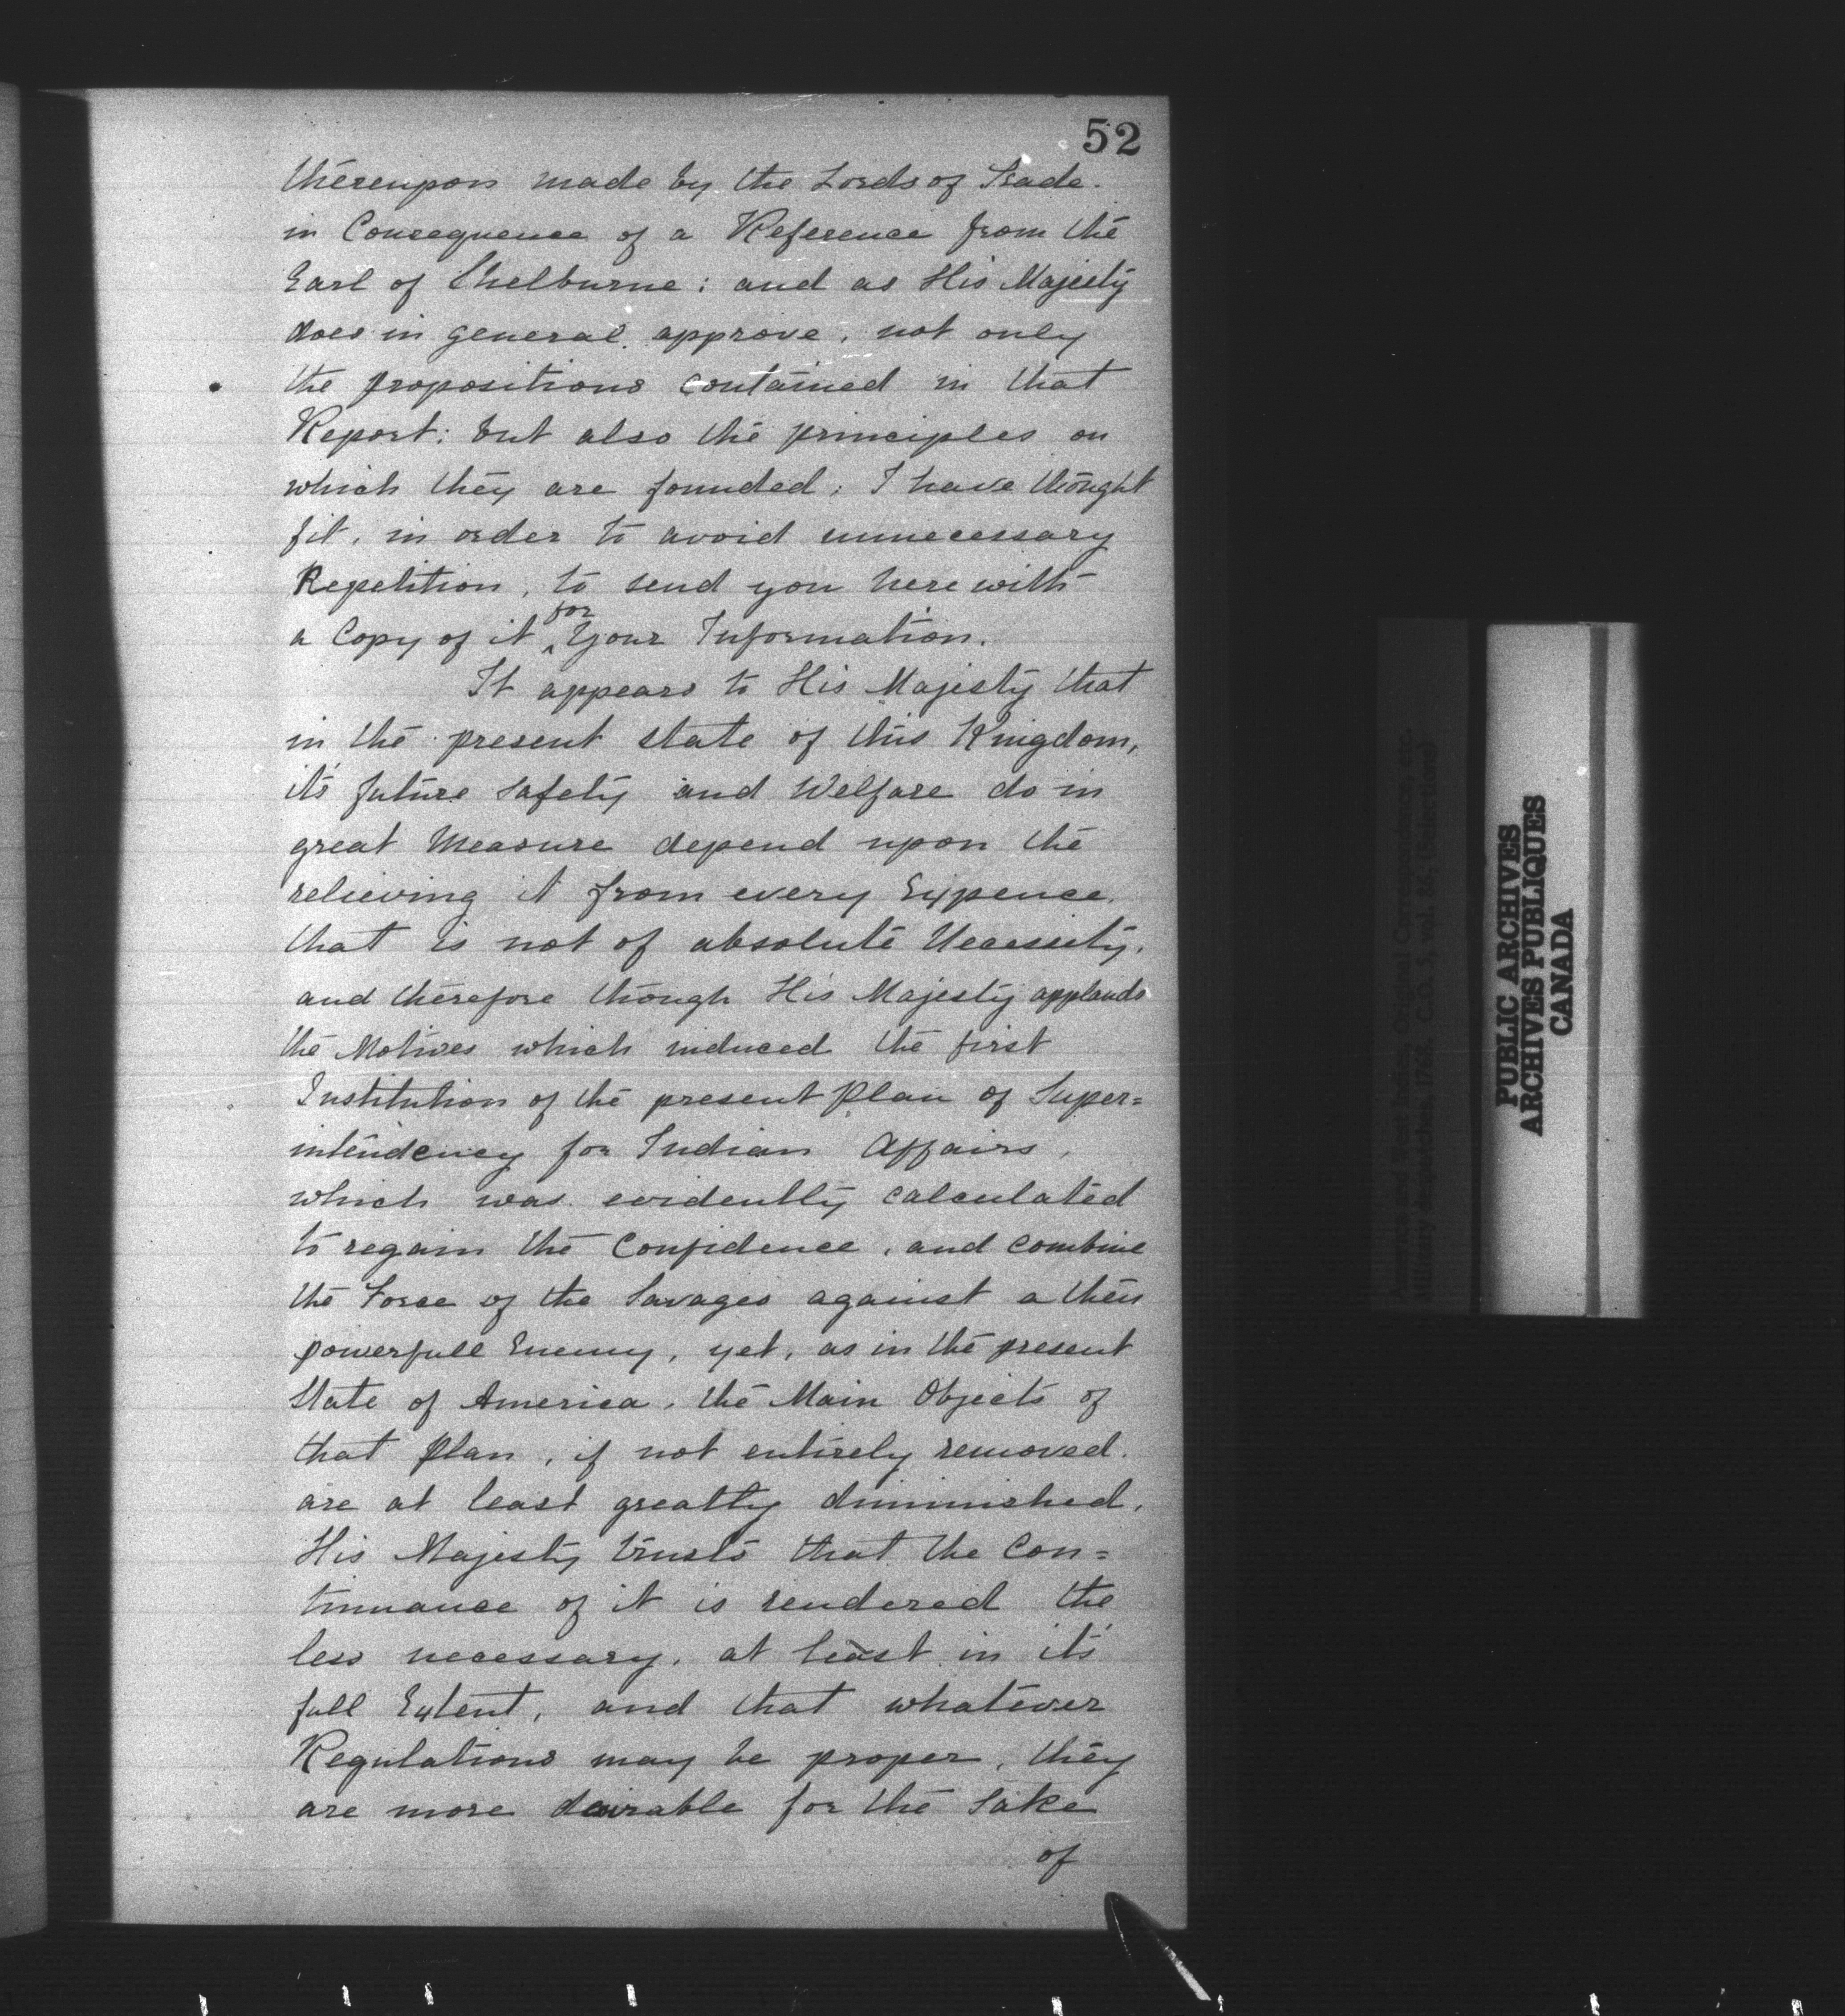 52
thereupon made by the Lords of Trade.
in Consequence of a Reference from the
Earl of Shelburne; and as His Majesty
does in general approve, not only
the propositions contained in that
Report: but also the principles on
which they are founded; I have thought
fit, in order to avoid unnecessary
Repetition, to send you herewith
a Copy of it for Your Information.
It appears to His Majesty that
in the present state of this Kingdom,
it's future safety and Welfare do in
great Measure depend upon the
relieving it from every Expence
that is not of absolute Necessity.
and therefore though His Majesty applauds
the Motives which induced the first
Institution of the present Plan of Super=
intendency for Indian Affairs,
which was evidently calculated
to regain the Confidence, and combine
the Force of the Savages against a then
powerfull Enemy, yet, as in the present
State of America, the Main Objects of
that plan, if not entirely removed.
are at least greatly diminished,
His Majesty trusts that the Con=
tinuance of it is rendered the
less necessary, at least in it's
full Extent, and that whatever
Regulations may be proper, they
are more desirable for the Sake
of
PUBLIC ARCHIVES
ARCHIVES PUBLIQUES
CANADA
America and West Indies, Original Correspondence, etc.
Military despatches, 1768. C.O. 5, vol. 86, (Selections)